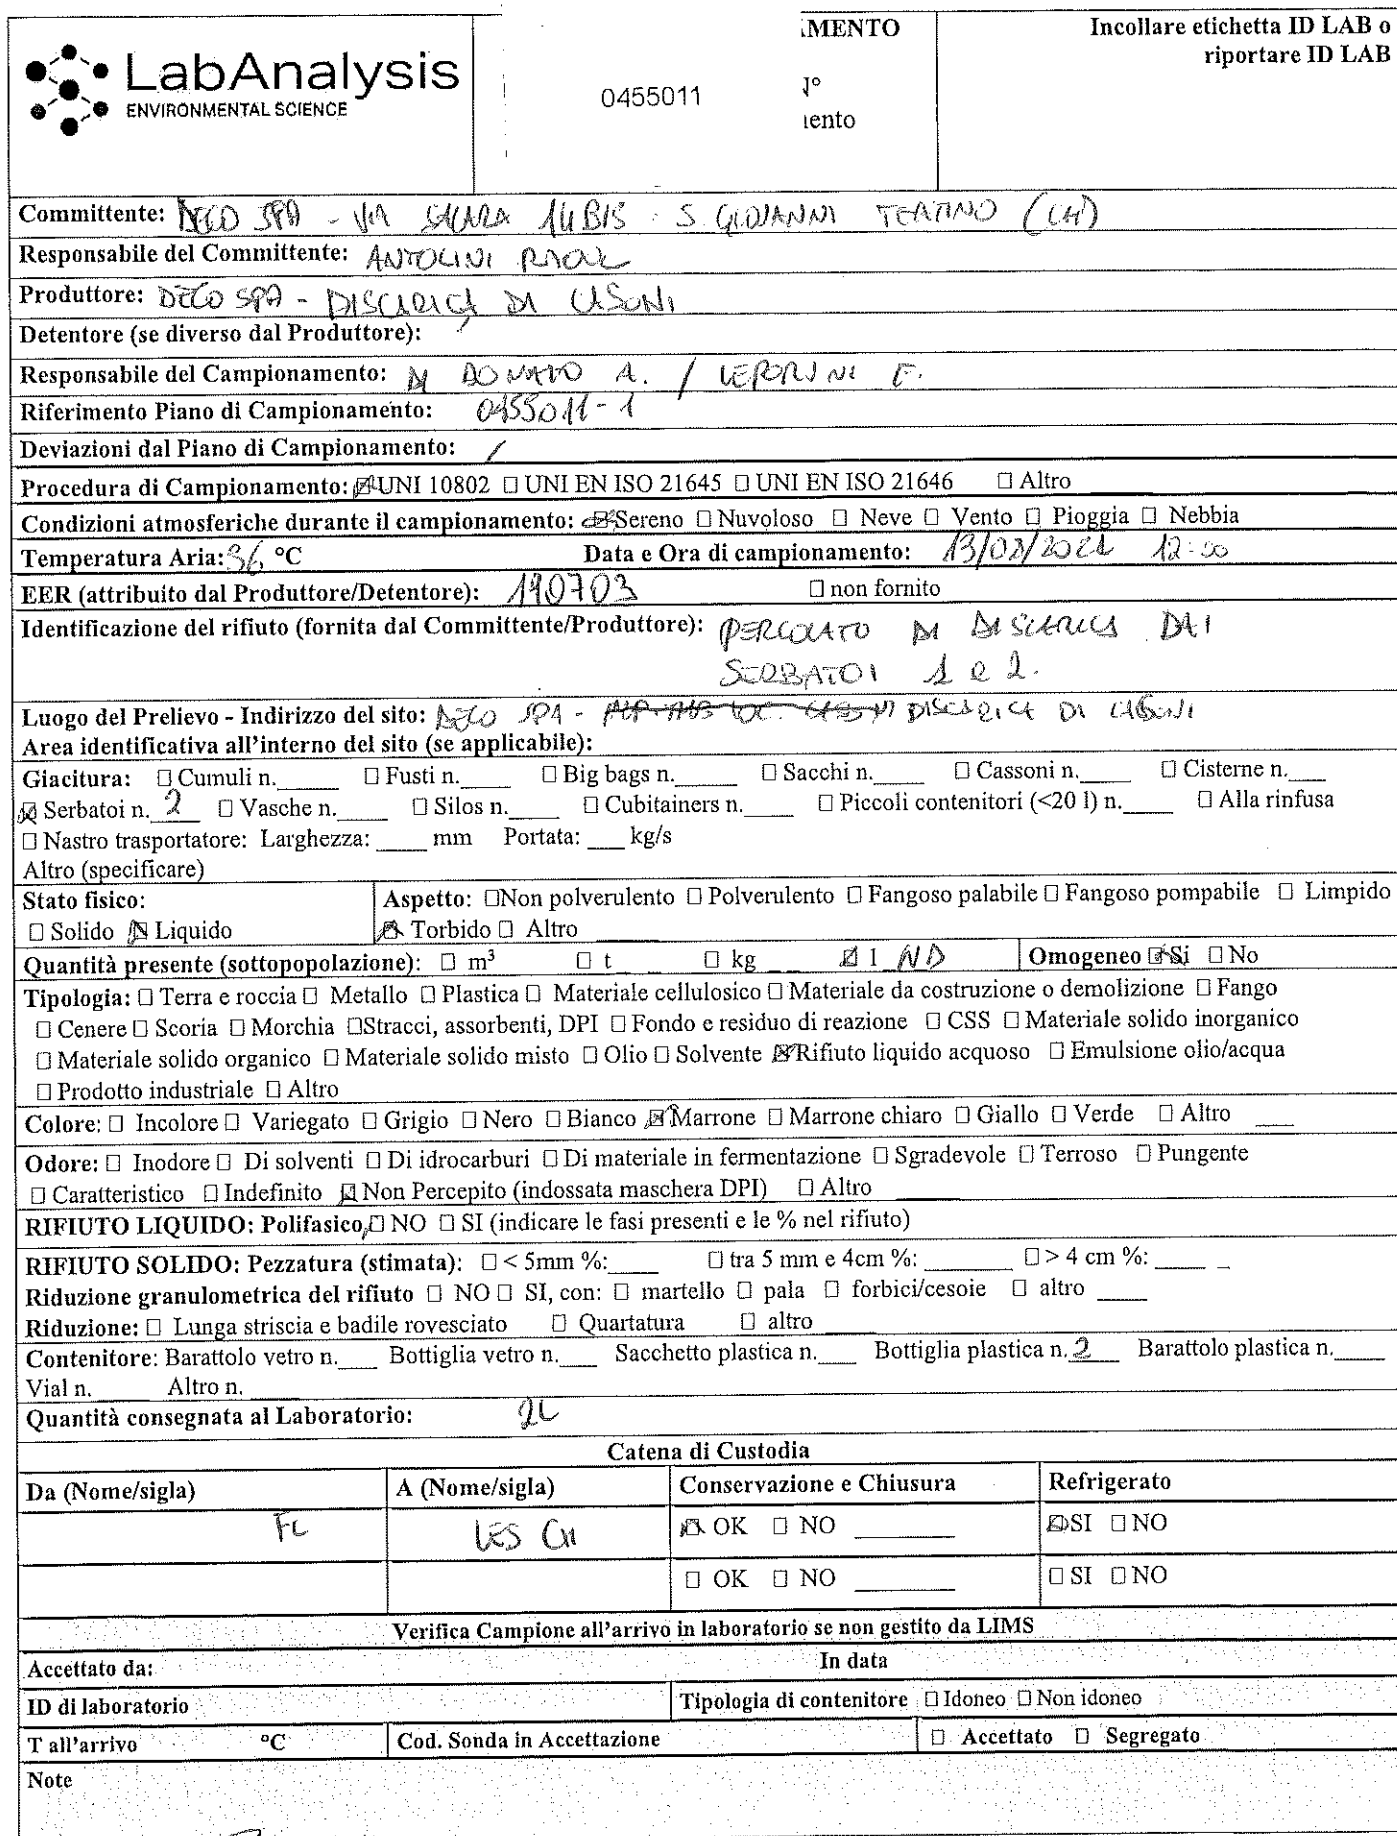 LabAnalysis
ENVIRONMENTAL SCIENCE
MENTO
0455011
N°
ento
Incollare etichetta ID LAB o
riportare ID LAB
Committente: DECO SPA - VIA SALARA 14 BIS - S. GIOVANNI TEATINO (CH)
Responsabile del Committente: ANTOLINI RAOUL
Produttore: DECO SPA - DISCARICA DI CASONI
Detentore (se diverso dal Produttore): /
Responsabile del Campionamento: DI DONATO A. / LEPORINI F.
Riferimento Piano di Campionamento: 0455011-1
Deviazioni dal Piano di Campionamento: /
Procedura di Campionamento: ☒ UNI 10802 ☐ UNI EN ISO 21645 ☐ UNI EN ISO 21646 ☐ Altro
Condizioni atmosferiche durante il campionamento: ☒ Sereno ☐ Nuvoloso ☐ Neve ☐ Vento ☐ Pioggia ☐ Nebbia
Temperatura Aria: 36 °C Data e Ora di campionamento: 13/08/2021 12:00
EER (attribuito dal Produttore/Detentore): 190703 ☐ non fornito
Identificazione del rifiuto (fornita dal Committente/Produttore): PERCOLATO DI DISCARICA DAI
SERBATOI 1 e 2.
Luogo del Prelievo - Indirizzo del sito: DECO SPA - DISCARICA DI CASONI
Area identificativa all'interno del sito (se applicabile):
Giacitura: ☐ Cumuli n.____ ☐ Fusti n.____ ☐ Big bags n.____ ☐ Sacchi n.____ ☐ Cassoni n.____ ☐ Cisterne n.___
☒ Serbatoi n. 2 ☐ Vasche n.____ ☐ Silos n.____ ☐ Cubitainers n.____ ☐ Piccoli contenitori (<20 l) n.____ ☐ Alla rinfusa
☐ Nastro trasportatore: Larghezza: ____ mm Portata: ___ kg/s
Altro (specificare)
Stato fisico: Aspetto: ☐ Non polverulento ☐ Polverulento ☐ Fangoso palabile ☐ Fangoso pompabile ☐ Limpido
☐ Solido ☒ Liquido ☒ Torbido ☐ Altro
Quantità presente (sottopopolazione): ☐ m³ ☐ t ☐ kg ☒ l ND Omogeneo ☒ Si ☐ No
Tipologia: ☐ Terra e roccia ☐ Metallo ☐ Plastica ☐ Materiale cellulosico ☐ Materiale da costruzione o demolizione ☐ Fango
☐ Cenere ☐ Scoria ☐ Morchia ☐ Stracci, assorbenti, DPI ☐ Fondo e residuo di reazione ☐ CSS ☐ Materiale solido inorganico
☐ Materiale solido organico ☐ Materiale solido misto ☐ Olio ☐ Solvente ☒ Rifiuto liquido acquoso ☐ Emulsione olio/acqua
☐ Prodotto industriale ☐ Altro
Colore: ☐ Incolore ☐ Variegato ☐ Grigio ☐ Nero ☐ Bianco ☒ Marrone ☐ Marrone chiaro ☐ Giallo ☐ Verde ☐ Altro ___
Odore: ☐ Inodore ☐ Di solventi ☐ Di idrocarburi ☐ Di materiale in fermentazione ☐ Sgradevole ☐ Terroso ☐ Pungente
☐ Caratteristico ☐ Indefinito ☒ Non Percepito (indossata maschera DPI) ☐ Altro
RIFIUTO LIQUIDO: Polifasico ☐ NO ☐ SI (indicare le fasi presenti e le % nel rifiuto)
RIFIUTO SOLIDO: Pezzatura (stimata): ☐ < 5mm %:____ ☐ tra 5 mm e 4cm %: ____ ☐ > 4 cm %: ____
Riduzione granulometrica del rifiuto ☐ NO ☐ SI, con: ☐ martello ☐ pala ☐ forbici/cesoie ☐ altro ____
Riduzione: ☐ Lunga striscia e badile rovesciato ☐ Quartatura ☐ altro
Contenitore: Barattolo vetro n.___ Bottiglia vetro n.___ Sacchetto plastica n.___ Bottiglia plastica n. 2 Barattolo plastica n.____
Vial n. ____ Altro n. ____
Quantità consegnata al Laboratorio: 2L
Catena di Custodia
Da (Nome/sigla) A (Nome/sigla) Conservazione e Chiusura Refrigerato
FL LES CH ☒ OK ☐ NO ________ ☒ SI ☐ NO
☐ OK ☐ NO ________ ☐ SI ☐ NO
Verifica Campione all'arrivo in laboratorio se non gestito da LIMS
Accettato da: In data
ID di laboratorio Tipologia di contenitore ☐ Idoneo ☐ Non idoneo
T all'arrivo °C Cod. Sonda in Accettazione ☐ Accettato ☐ Segregato
Note